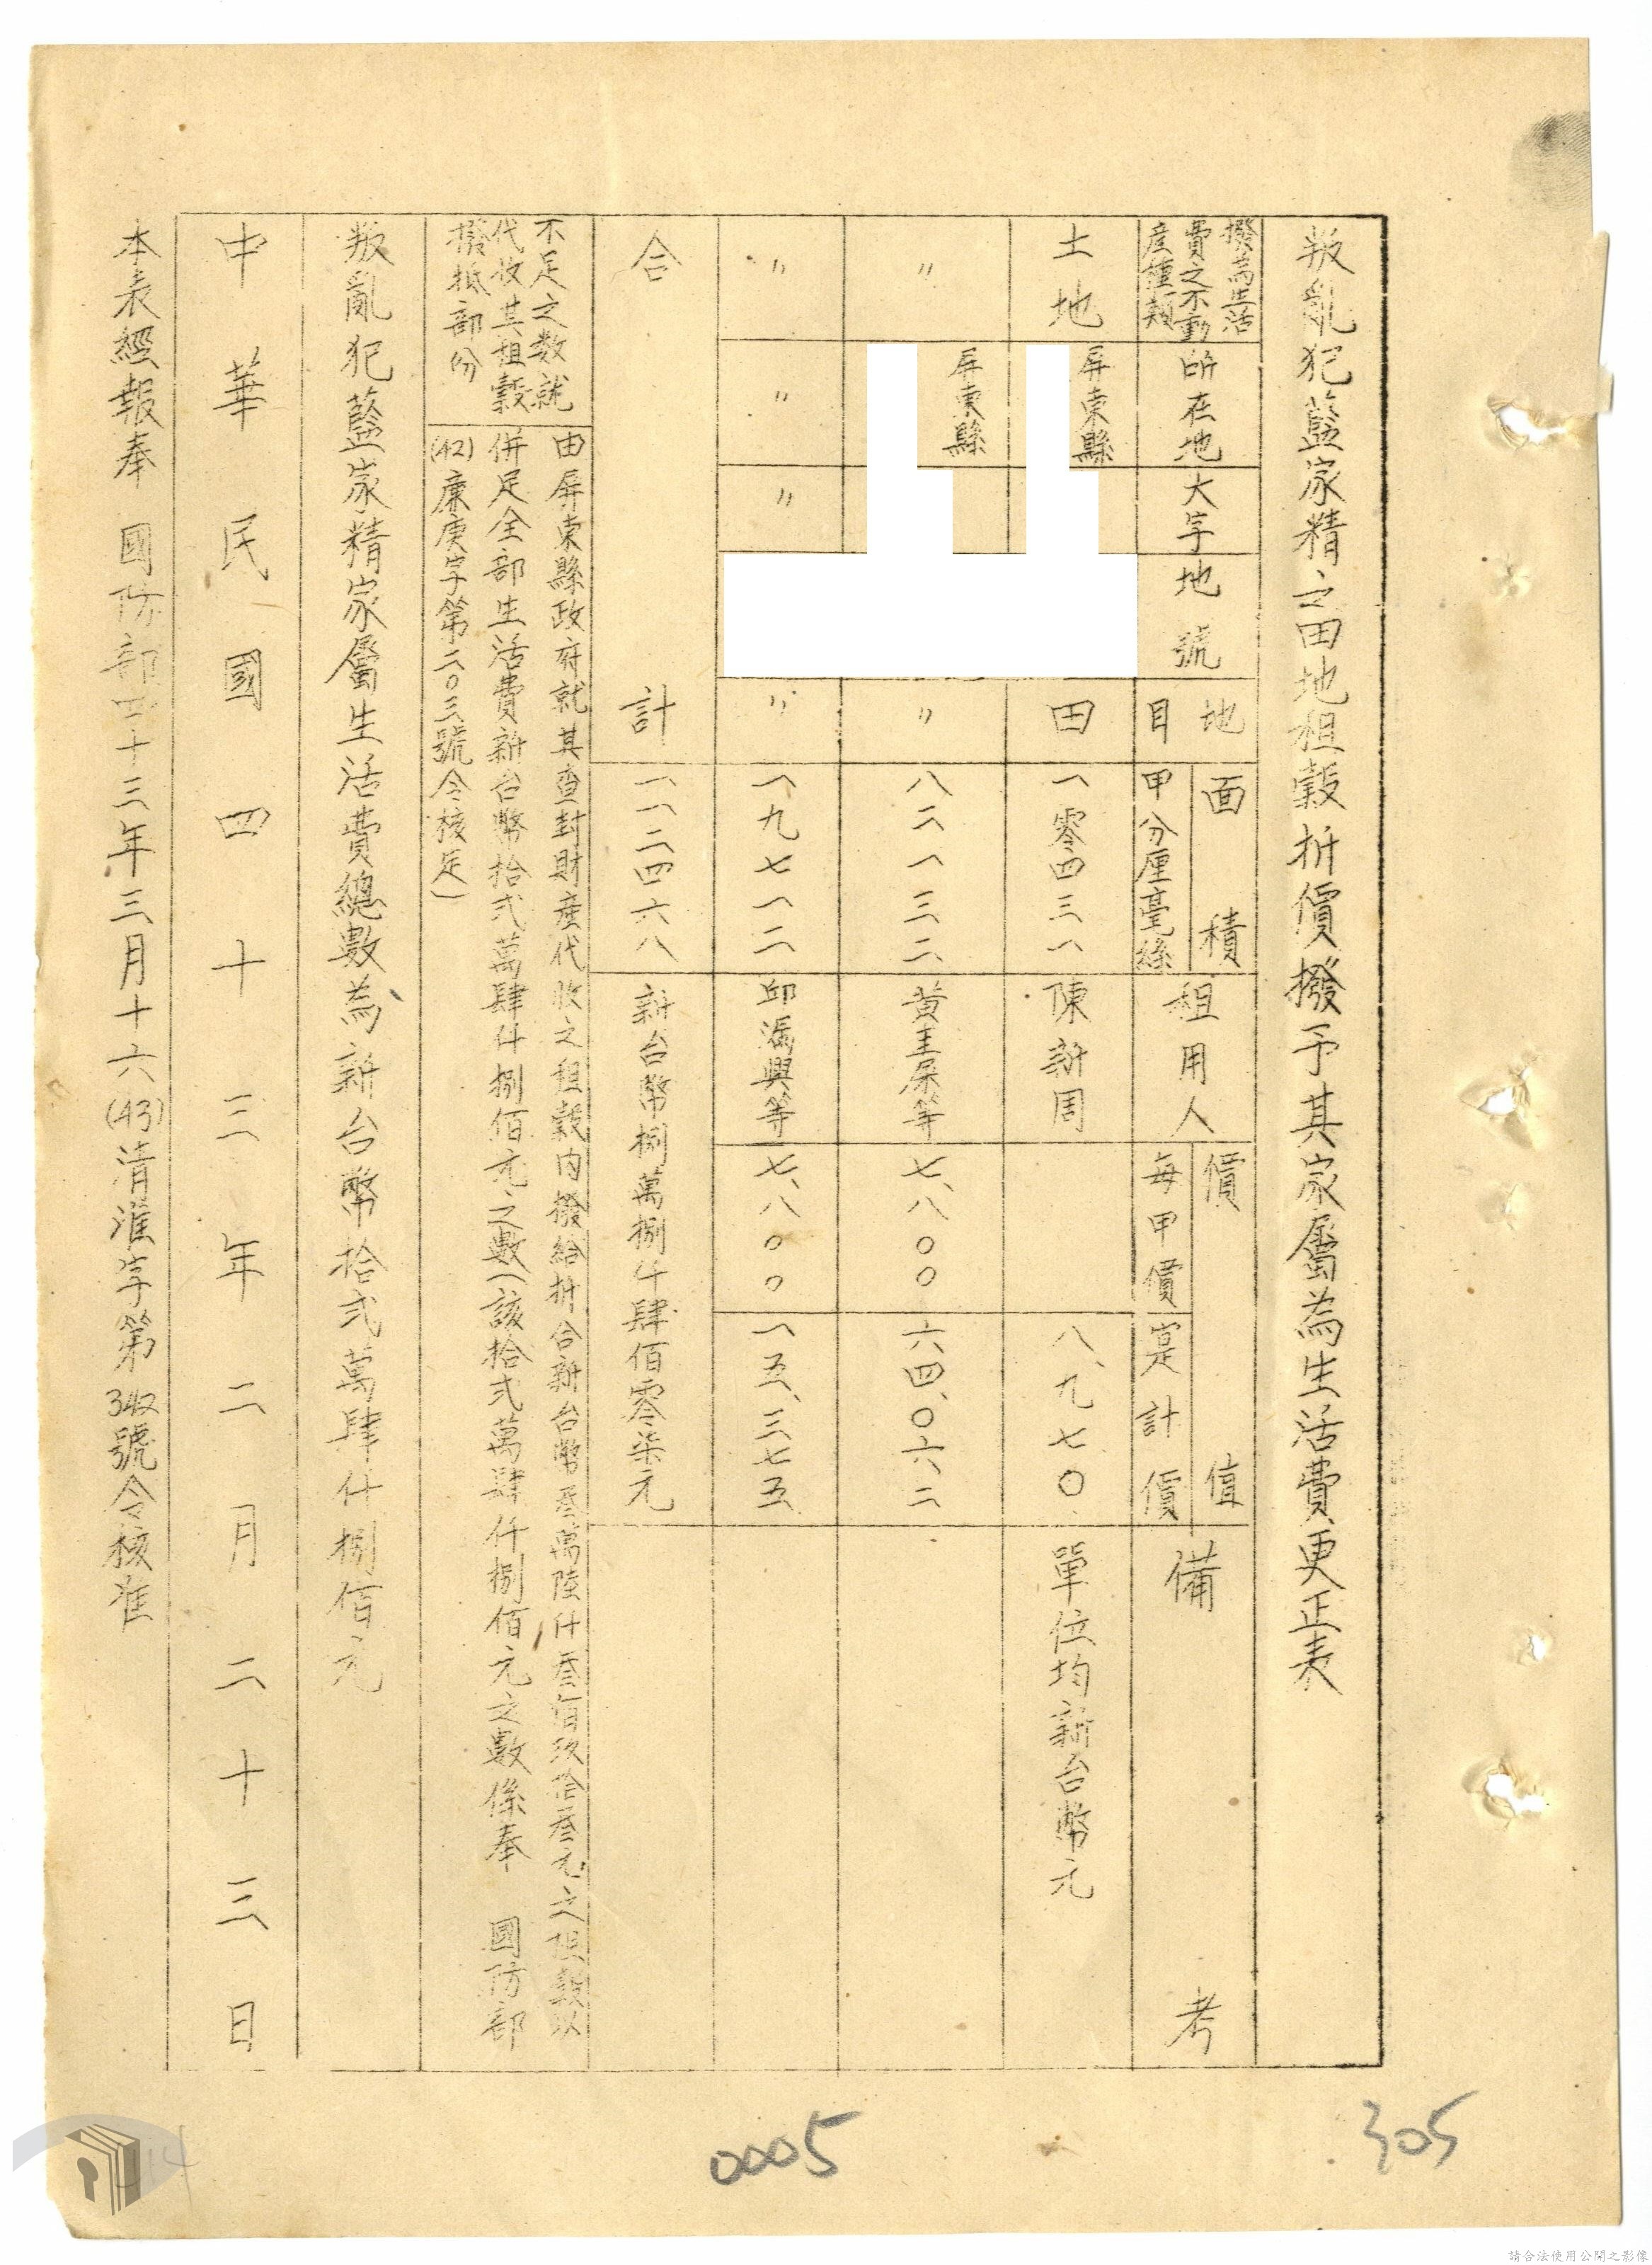 叛亂犯藍家精之田地租穀折價撥予其家屬為生活費更正表
撥為生活
費之不動
產種類
所在地
大字
地號
地目
面積
甲分厘毫絲
租用人
價值
每甲價
計價
備考
土地
屏東縣
田
一零四三一
陳新周
八、九七〇
單位均新台幣元
〃
屏東縣
〃
八二一三二
七、八〇〇
六四、〇六二
〃
〃
〃
〃
一九七一二
七、八〇〇
一五、三七五
合計
一一二四六八
新台幣捌萬捌仟肆佰零柒元
不足之数就
代收其租穀
撥抵部份
由屏東縣政府就其查封財產代收之租穀內撥給折合新台幣叁萬陸仟叁佰玖拾叁元之租穀以
併足全部生活費新台幣拾弍萬肆仟捌佰元之數(該拾弍萬肆仟捌佰元之數係奉 國防部
(42)廉庚字第二〇三號令核定)
叛亂犯藍家精家屬生活費總數為新台幣拾弍萬肆仟捌佰元
中華民國四十三年二月二十三日
本表經報奉 國防部四十三年三月十六(43)清淮字第342號令核准
0005
305
請合法使用公開之影像